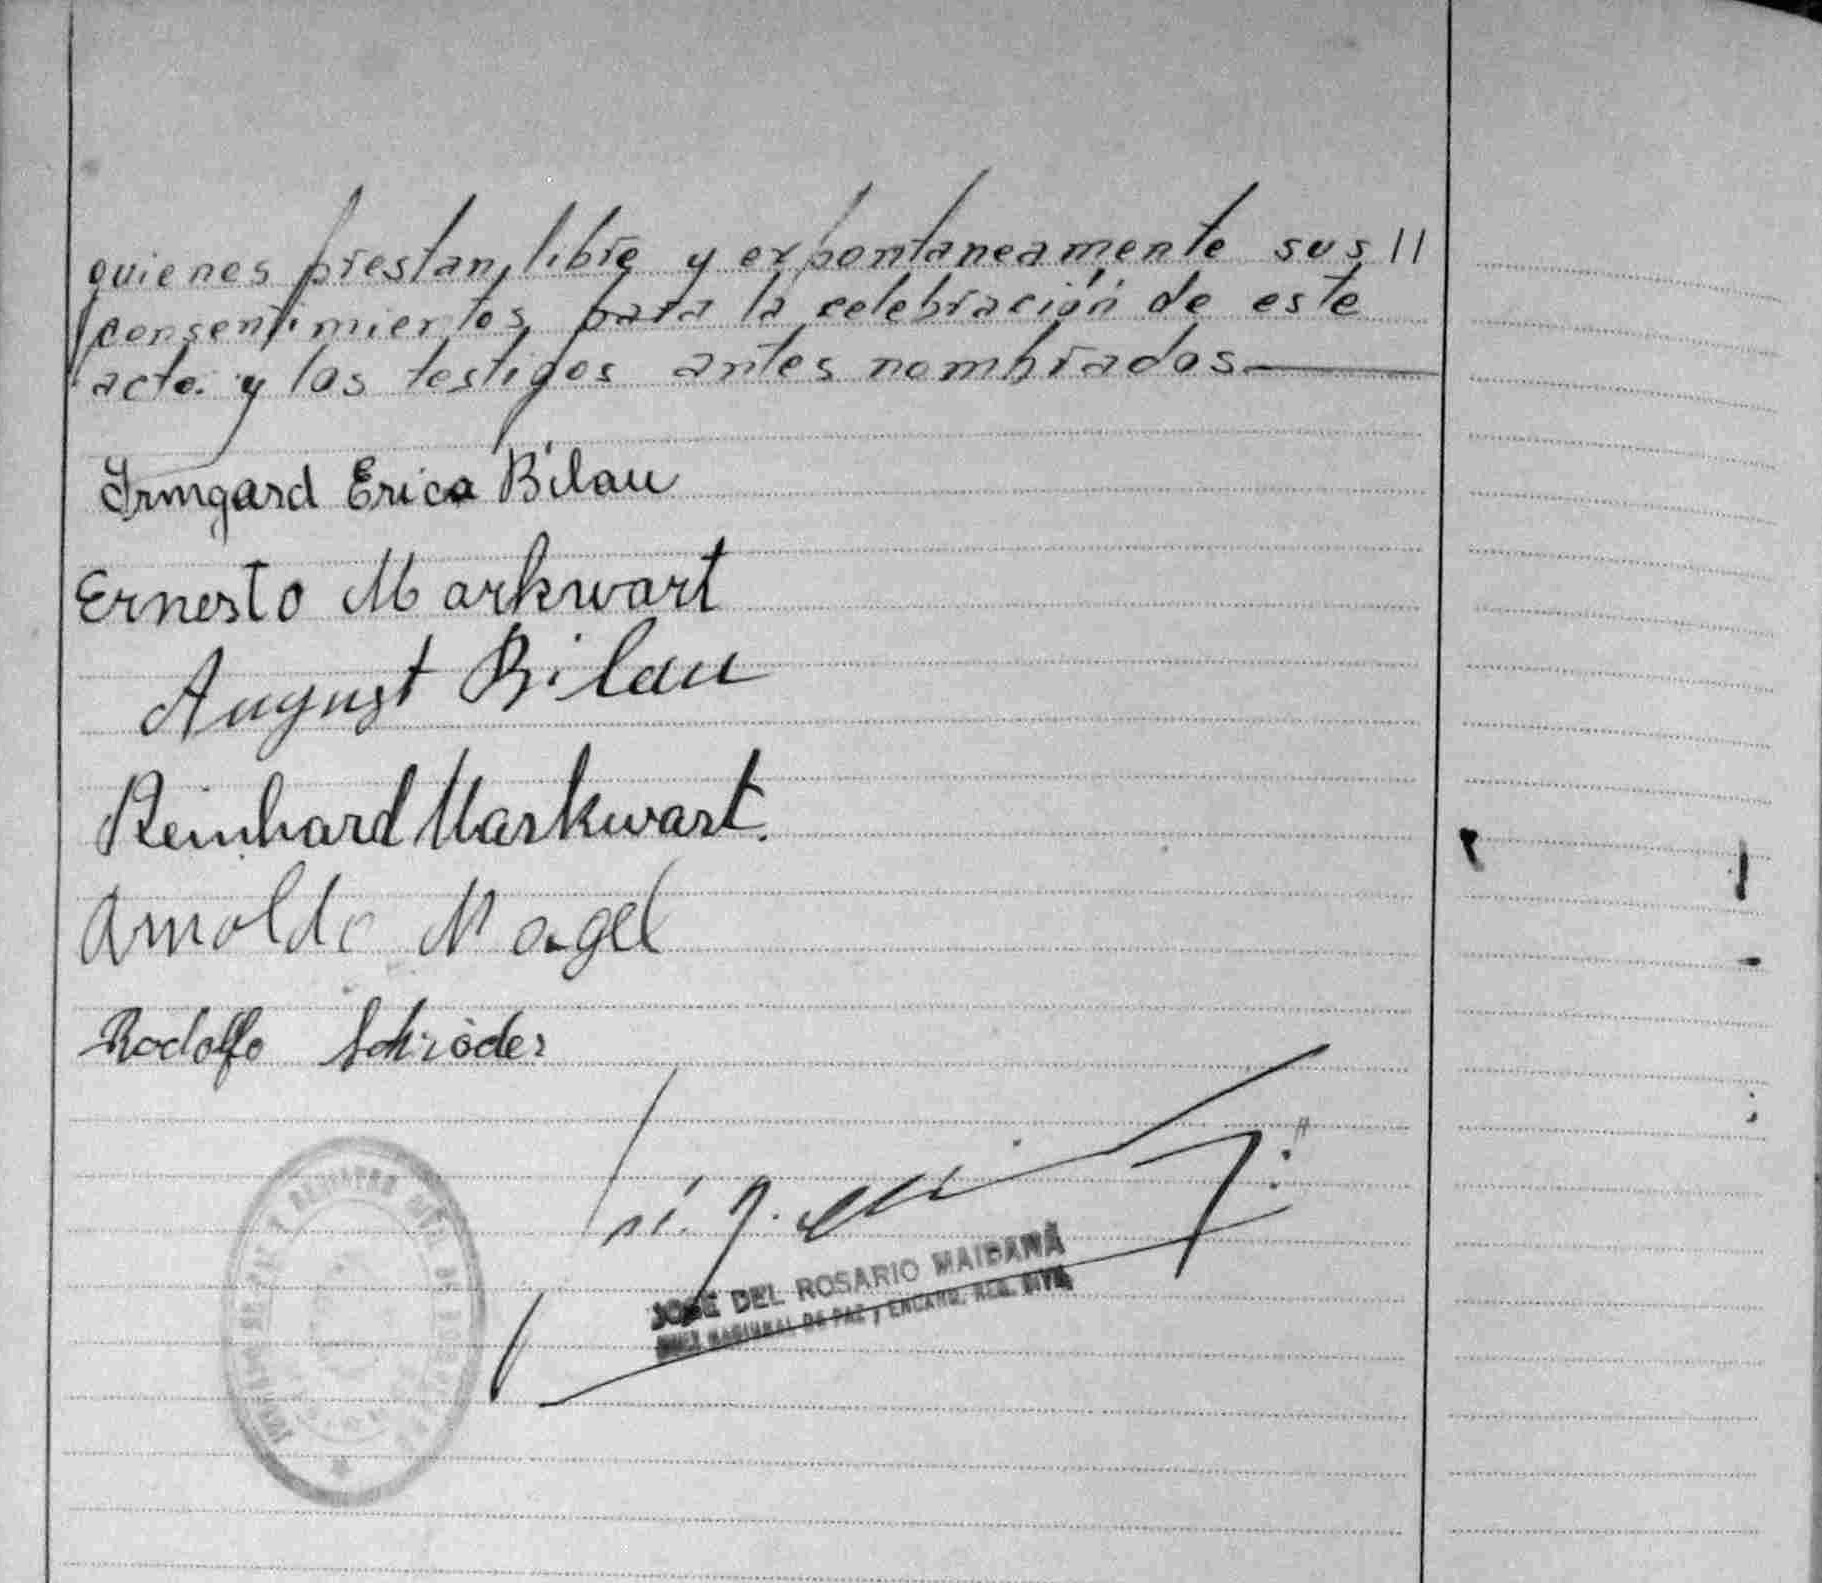 quienes prestan libre y expontaneamente sus //
consentimientos para la celebración de este
acto. y los testigos antes nombrados
Irmgard Erica Bilau
Ernesto Markwart
August Bilau
Reinhard Markwart.
Arnoldo Nagel
Rodolfo Schröder
JOSE DEL ROSARIO MAIDANA
JUEZ NACIONAL DE PAZ y ENCARG. REG. CIVIL